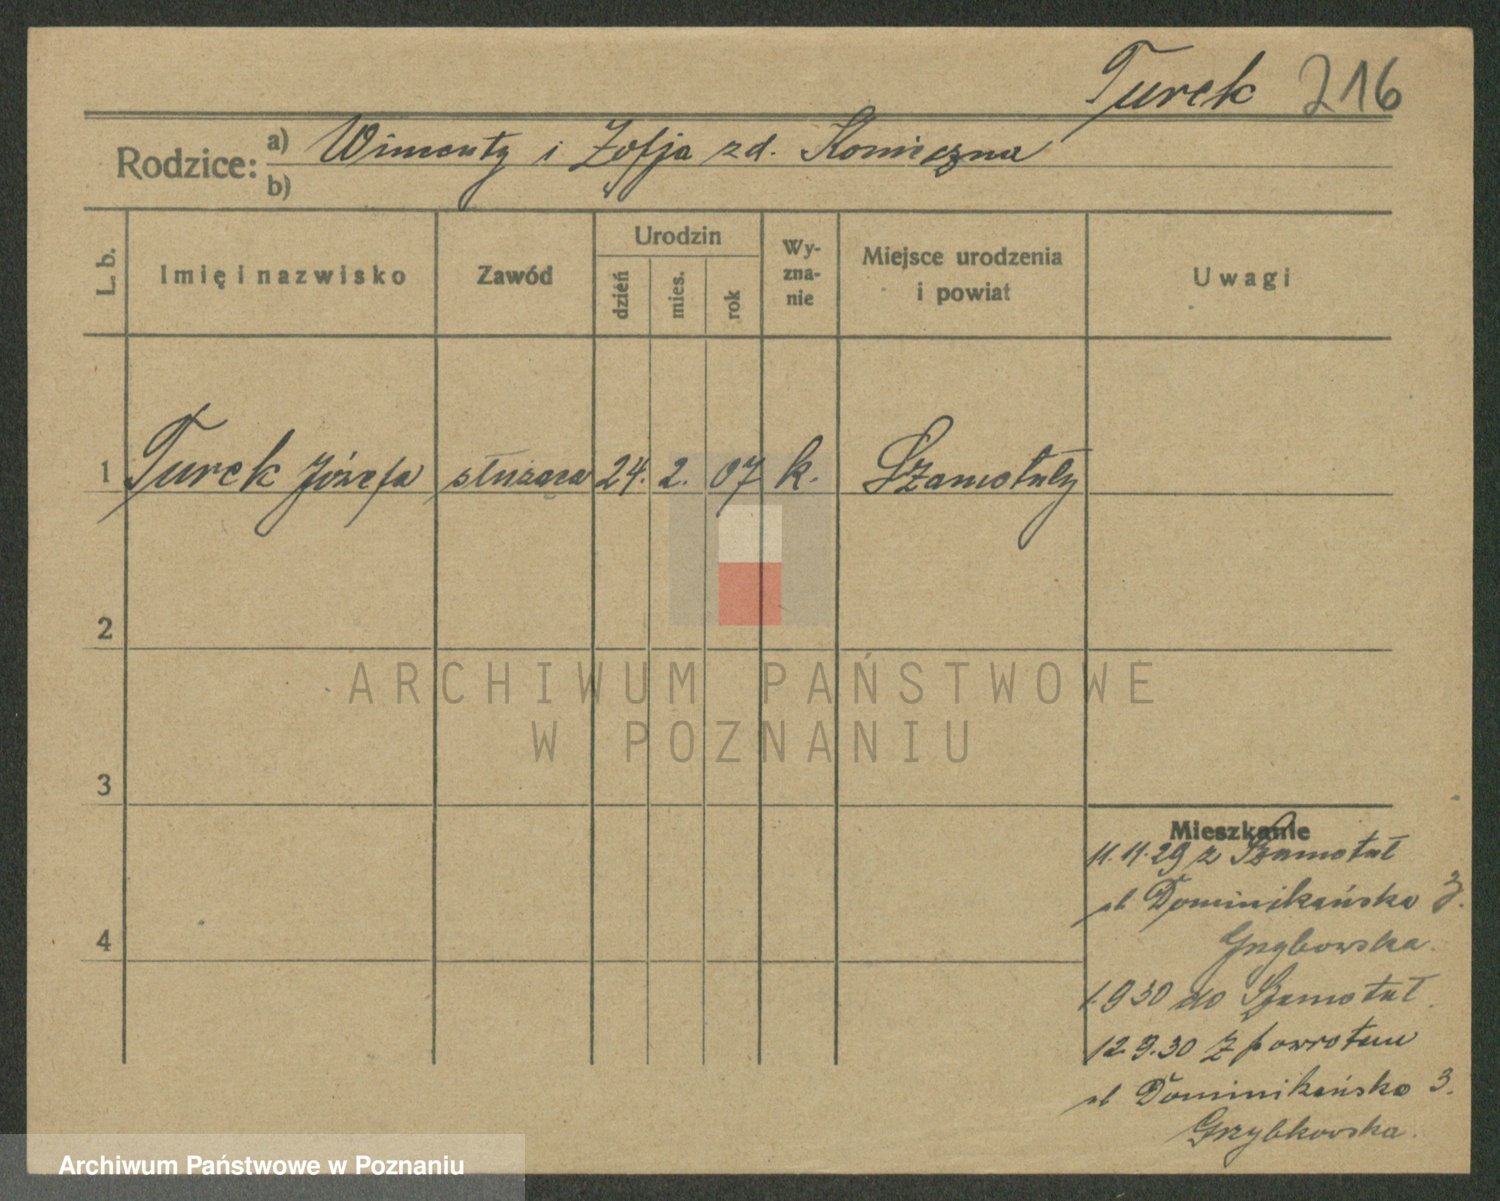 Turek 216
Rodzice: a) Wincenty i Zofja zd. Konieczna
b)
L. b.
Imię i nazwisko
Zawód
Urodzin
dzień
mies.
rok
Wy-
zna-
nie
Miejsce urodzenia
i powiat
Uwagi
1 Turek Józefa służąca 24. 2. 07 k. Szamotuły
2
3
4
ARCHIWUM PAŃSTWOWE
W POZNANIU
Mieszkanie
11.11.29 z Szamotuł
ul Dominikańska 3.
Grybowska.
1.9 30 do Szamotuł.
12.9.30 z powrotem
ul Dominikańska 3.
Grzybkowska.
Archiwum Państwowe w Poznaniu